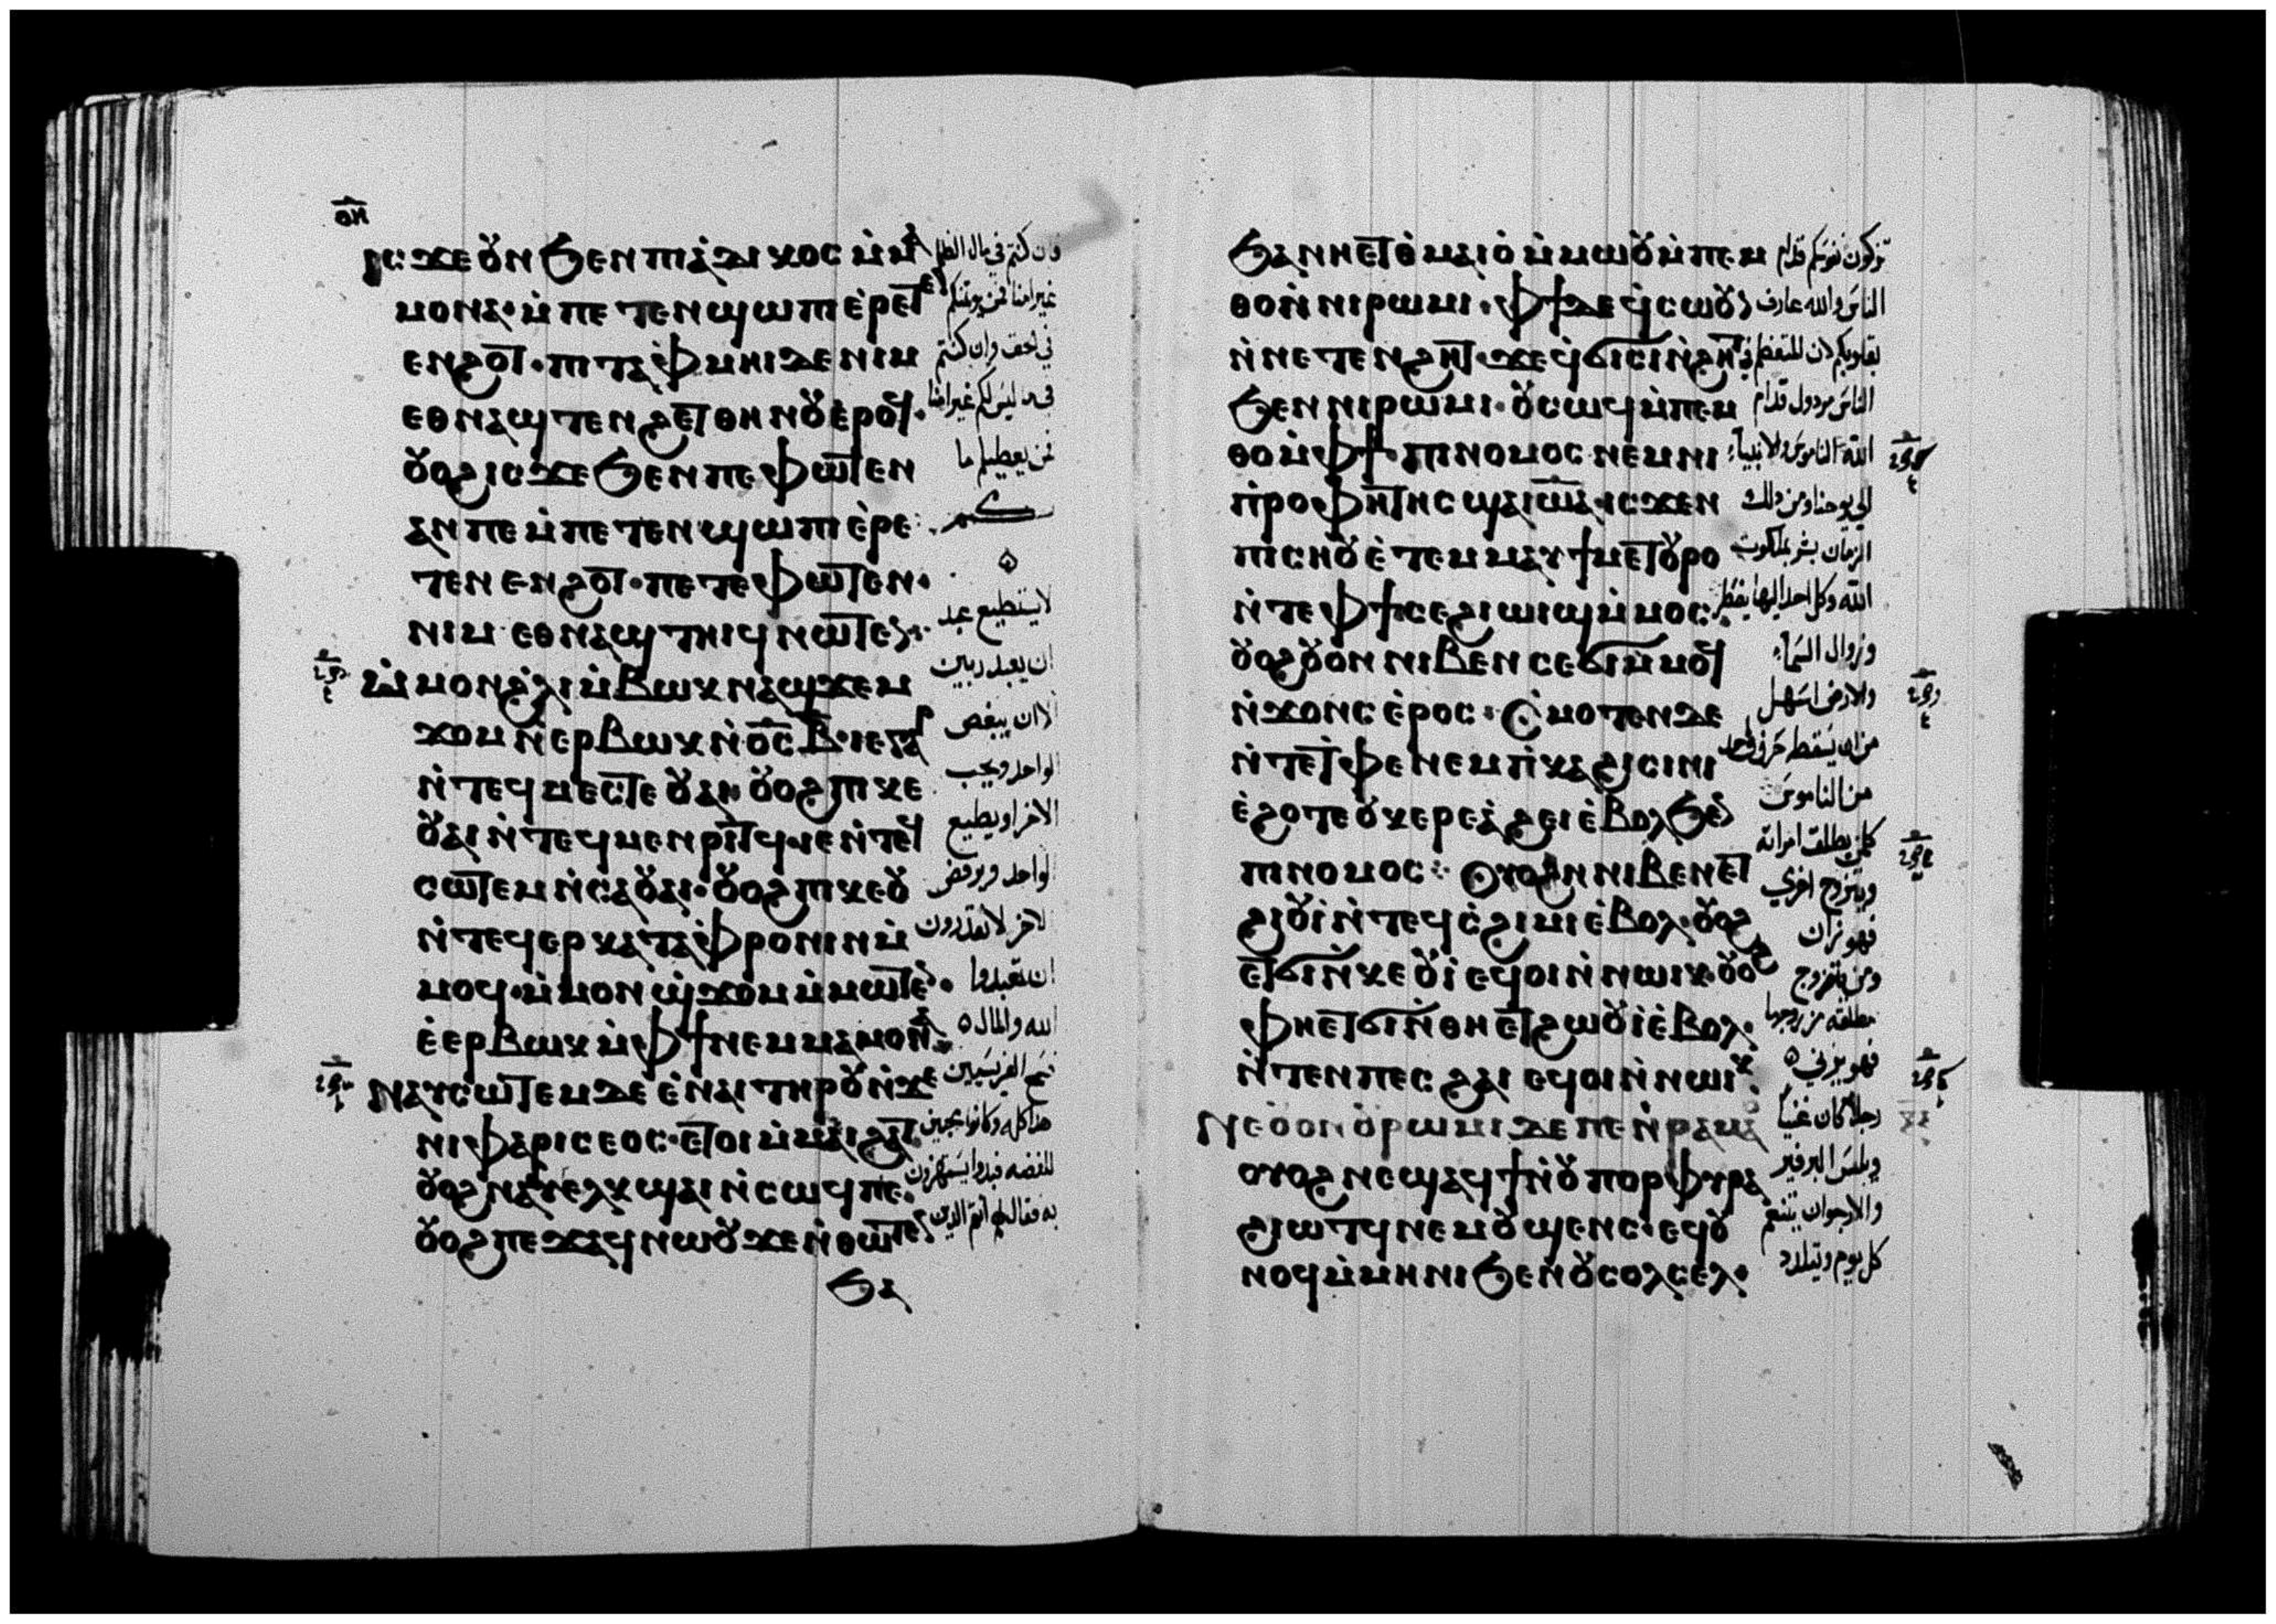 ⲟⲏ
ⲓⲥϫⲉ ⲟⲩⲛ ϧⲉⲛ ⲡⲓⲁ̀ⲇⲓⲕⲟⲥ ⲙ̀ⲙⲁ
ⲙⲟⲛⲁ· ⲙ̀ⲡⲉⲧⲉⲛϣⲱⲡⲓ ⲉ̀ⲣⲉⲧⲉ
ⲉⲛϩⲟⲧ· ⲡⲓⲧⲁⲫ̀ⲙⲏⲓ ⲇⲉ ⲛⲓⲙ
ⲉⲑⲛⲁϣⲧⲉⲛϩⲉⲧ ⲑⲏⲛⲟⲩ ⲉ̀ⲣⲟϥ·
ⲟⲩⲟϩ ⲓⲥϫⲉ ϧⲉⲛ ⲡⲉⲫⲱⲧⲉⲛ
ⲁⲛ ⲡⲉ ⲙ̀ⲡⲉⲧⲉⲛϣⲱⲡⲓ ⲉ̀ⲣⲉ
ⲧⲉⲛ ⲉⲛϩⲟⲧ· ⲡⲉⲧⲉ ⲫⲱⲧⲉⲛ·
ⲛⲓⲙ ⲉⲑⲛⲁϣⲧⲏⲓϥ ⲛⲱⲧⲉⲛ·
ⲙ̀ⲙⲟⲛ ϩ̀ⲗⲓ ⲙ̀ⲃⲱⲕ ⲛⲁϣϫⲉⲙ
ϫⲟⲙ ⲛ̀ⲉⲣⲃⲱⲕ ⲛ̀ⲟ̅ⲥ̅ ⲃ̅· ⲓⲉ ⲅⲁⲣ
ⲛ̀ⲧⲉϥⲙⲉⲥⲧⲉ ⲟⲩⲁⲓ ⲟⲩⲟϩ ⲡⲓⲕⲉ
ⲟⲩⲁⲓ ⲛ̀ⲧⲉϥⲙⲉⲛⲣⲓⲧϥ· ⲓⲉ ⲛ̀ⲧⲉϥ
ⲥⲱⲧⲉⲙ ⲛ̀ⲥⲁ ⲟⲩⲁⲓ· ⲟⲩⲟϩ ⲡⲓⲕⲉⲟⲩ
ⲛ̀ⲧⲉϥⲉⲣⲕⲁⲧⲁⲫ̀ⲣⲟⲛⲓⲛ ⲙ̀
ⲙⲟϥ· ⲙ̀ⲙⲟⲛ ϣ̀ϫⲟⲙ ⲙ̀ⲙⲱⲧⲉⲛ·
ⲉ̀ⲉⲣⲃⲱⲕ ⲙ̀ⲫϯ ⲛⲉⲙ ⲙⲁⲙⲟⲛⲁ
ⲛⲁⲩⲥⲱⲧⲉⲙ ⲇⲉ ⲉ̀ⲛⲁⲓ ⲧⲏⲣⲟⲩ ⲛ̀ϫⲉ
ⲛⲓⲫⲁⲣⲓⲥⲉⲟⲥ· ⲉⲧⲟⲓ ⲙ̀ⲙⲁⲓϩⲁⲧ·
ⲟⲩⲟϩ ⲛⲁⲩⲉⲗⲕϣⲁⲓ ⲛ̀ⲥⲱϥ ⲡⲉ·
ⲟⲩⲟϩ ⲡⲉϫⲁϥ ⲛⲱⲟⲩ ϫⲉ ⲛ̀ⲑⲱⲧⲉⲛ
ϧⲁ
فان كنتم في مال الظلم
غير امنا فمن يوتمنكم
في الحق وان كنتم
فيما ليس لكم غير امنا
فمن يعطيكم ما
لكم
لا يستطيع عبد
ان يعبد ربين
الا ان يبغض
الواحد ويحب
الاخر او يطيع
الواحد ويرفض
الاخر لا تقدرون
ان تعبدوا
الله والمال ه
فسمع الفريسيين
هذا كله وكانوا محبين
للفضه فبدوا يستهزون
به فقال لهم انتم الذين
ϧⲁ ⲛⲏⲉⲧⲑⲙⲁⲓⲟ̀ ⲙ̀ⲙⲱⲟⲩ ⲙ̀ⲡⲉⲙ
ⲑⲟ ⲛ̀ⲛⲓⲣⲱⲙⲓ· ⲫϯ ⲇⲉ ϥ̀ⲥⲱⲟⲩⲛ
ⲛ̀ⲛⲉⲧⲉⲛϩⲏⲧ· ϫⲉ ϥ̀ϭⲓⲥⲓ ⲛ̀ϩⲏⲧ
ϧⲉⲛ ⲛⲓⲣⲱⲙⲓ· ⲟⲩⲥⲱϥ ⲙ̀ⲡⲉⲙ
ⲑⲟ ⲙ̀ⲫϯ· ⲡⲓⲛⲟⲙⲟⲥ ⲛⲉⲙ ⲛⲓ
ⲡ̀ⲣⲟⲫⲏⲧⲏⲥ ϣⲁ ⲓⲱⲁ· ⲓⲥϫⲉⲛ
ⲡⲓⲥⲏⲟⲩ ⲉ̀ⲧⲉⲙⲙⲁⲩ ϯⲙⲉⲧⲟⲩⲣⲟ
ⲛ̀ⲧⲉ ⲫϯ ⲥⲉϩⲓⲱⲓϣ ⲙ̀ⲙⲟⲥ
ⲟⲩⲟϩ ⲟⲩⲟⲛ ⲛⲓⲃⲉⲛ ⲥⲉϭⲓ ⲙ̀ⲙⲟϥ
ⲛ̀ϫⲟⲛⲥ ⲉ̀ⲣⲟⲥ· ⲥ̀ⲙⲟⲧⲉⲛ ⲇⲉ
ⲛ̀ⲧⲉ ⲧ̀ⲫⲉ ⲛⲉⲙ ⲡ̀ⲕⲁϩⲓ ⲥⲓⲛⲓ
ⲉ̀ϩⲟⲧⲉ ⲟⲩⲕⲉⲣⲉⲁ̀ ϩⲉⲓ ⲉ̀ⲃⲟⲗ ϧⲉⲛ
ⲡⲓⲛⲟⲙⲟⲥ· ⲟⲩⲟⲛ ⲛⲓⲃⲉⲛ ⲉⲧ
ϩⲓⲟⲩⲓ̀ ⲛ̀ⲧⲉϥⲥ̀ϩⲓⲙⲓ ⲉ̀ⲃⲟⲗ· ⲟⲩⲟϩ
ⲉⲧϭⲓ ⲛ̀ⲕⲉⲟⲩⲓ̀ ⲉϥⲟⲓ ⲛ̀ⲛⲱⲓⲕ· ⲟⲩⲟϩ
ⲫⲏⲉⲧϭⲓ ⲛ̀ⲑⲏⲉⲧϩⲱⲟⲩⲓ̀ ⲉ̀ⲃⲟⲗ·
ⲛ̀ⲧⲉⲛ ⲡⲉⲥϩⲁⲓ ⲉϥⲟⲓ ⲛ̀ⲛⲱⲓⲕ·
ⲛⲉ ⲟⲩⲟⲛ ⲟⲩⲣⲱⲙⲓ ⲇⲉ ⲡⲉ ⲛ̀ⲣⲁⲙⲁⲟ̀
ⲟⲩⲟϩ ⲛⲉϣⲁϥϯ ⲛ̀ⲟⲩⲡⲟⲣⲫⲩⲣⲁ
ϩⲓⲱⲧϥ ⲛⲉⲙ ⲟⲩϣⲉⲛⲥ· ⲉϥⲟⲩ
ⲛⲟϥ ⲙ̀ⲙⲏⲛⲓ ϧⲉⲛ ⲟⲩⲥⲟⲗⲥⲉⲗ·
تزكون نفوسكم قدام
الناس والله عارف
بقلوبكم لان المتعظم في
الناس مردول قدام
الله الناموس والانبياء
الي يوحنا ومن ذلك
الزمان بشر بملكوت
الله وكل احد اليها يضطر
وزوال السماء
والارض اسهل
من ان يسقط حرف واحد
من الناموس
كلمن يطلق امراته
ويتزوج اخري
فهو زان
ومن يتزوج
مطلقه من زوجها
فهو يزني ه
رجلا كان غنيا
ويلبس البرفير
والارجوان يتنعم
كل يوم ويتلدد